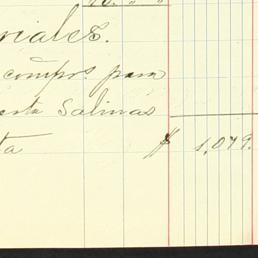 riales.
compos para
Salinas
ta $ 1,079.